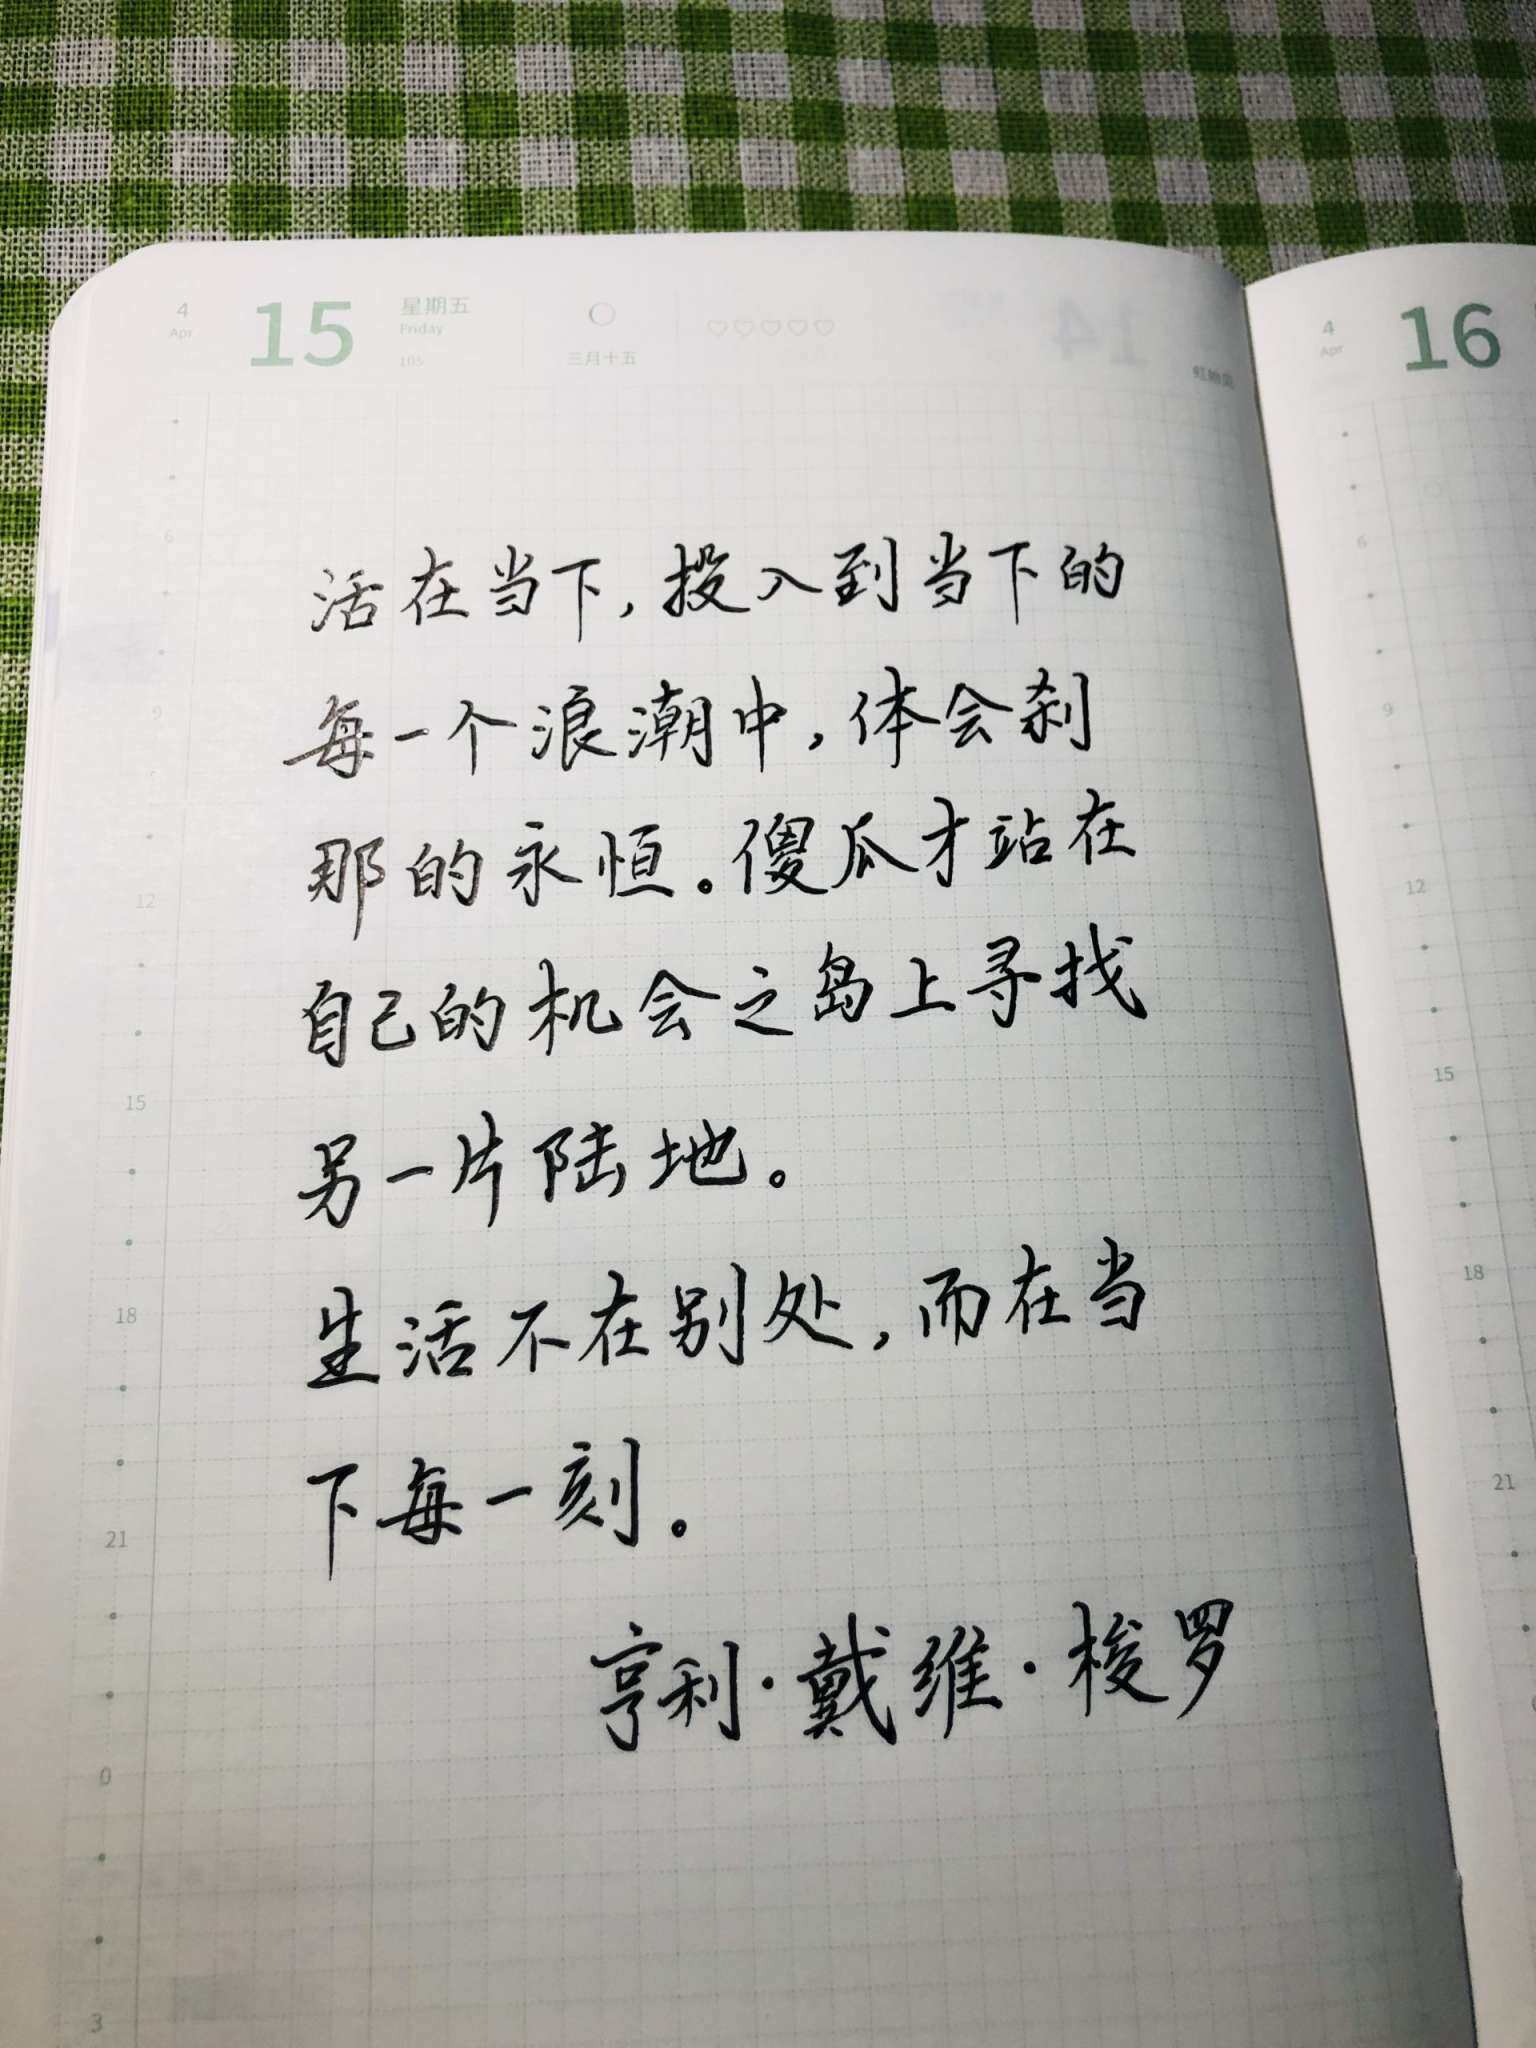 4
Apr
15
星期五
Friday
105
三月十五
14
4
Apr
16
活在当下,投入到当下的
每一个浪潮中,体会刹
那的永恒。傻瓜才站在
自己的机会之岛上寻找
另一片陆地。
生活不在别处,而在当
下每一刻。
亨利·戴维·梭罗
6
9
12
15
18
21
0
3
6
9
12
15
18
21